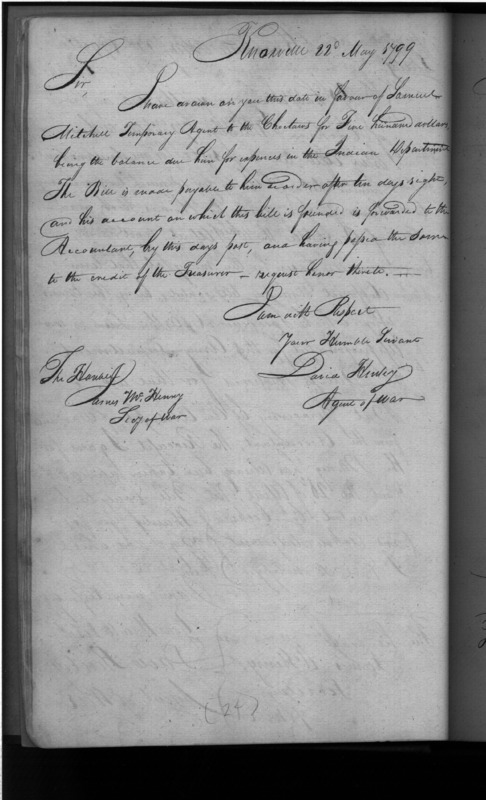 Knoxville 22d May 1799
Sir,
I have drawn on you this date in favour of Samuel
Mitchell Temporary Agent to the Choctaws for Five hundred dollars
being the balance due him for expences in the Indian Department
The Bill is made payable to him or order after ten days sight,
and his account on which this bill is founded is forwarded to the
Accountant, by this days post, and having passed the Same
to the credit of the Treasurer — request honor thereto. —
I am with Respect
Your Humble Servant
David Henley
Agent of War
The Honble
James McHenry
Secy of War
(24)